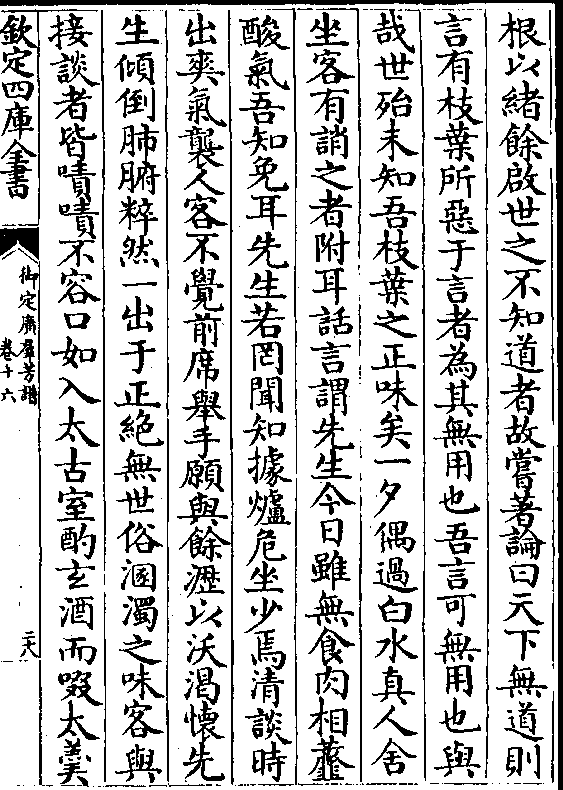 根以緒餘啟世之不知道者故嘗著論曰天下無道則
言有枝葉所惡于言者為其無用也吾言可無用也與
哉世殆未知吾枝葉之正味矣一夕偶過白水真人舍
坐客有誚之者附耳話言謂先生今日雖無食肉相虀
酸氣吾知免耳先生若罔聞知據爐危坐少焉清談時
出爽氣襲人客不覺前席舉手願與餘瀝以沃渴懷先
生傾倒肺腑粹然一出于正絕無世俗溷濁之味客與
接談者皆嘖嘖不容口如入太古室酌玄酒而啜太羹
欽定四庫全書
御定廣羣芳譜
卷十六
二八